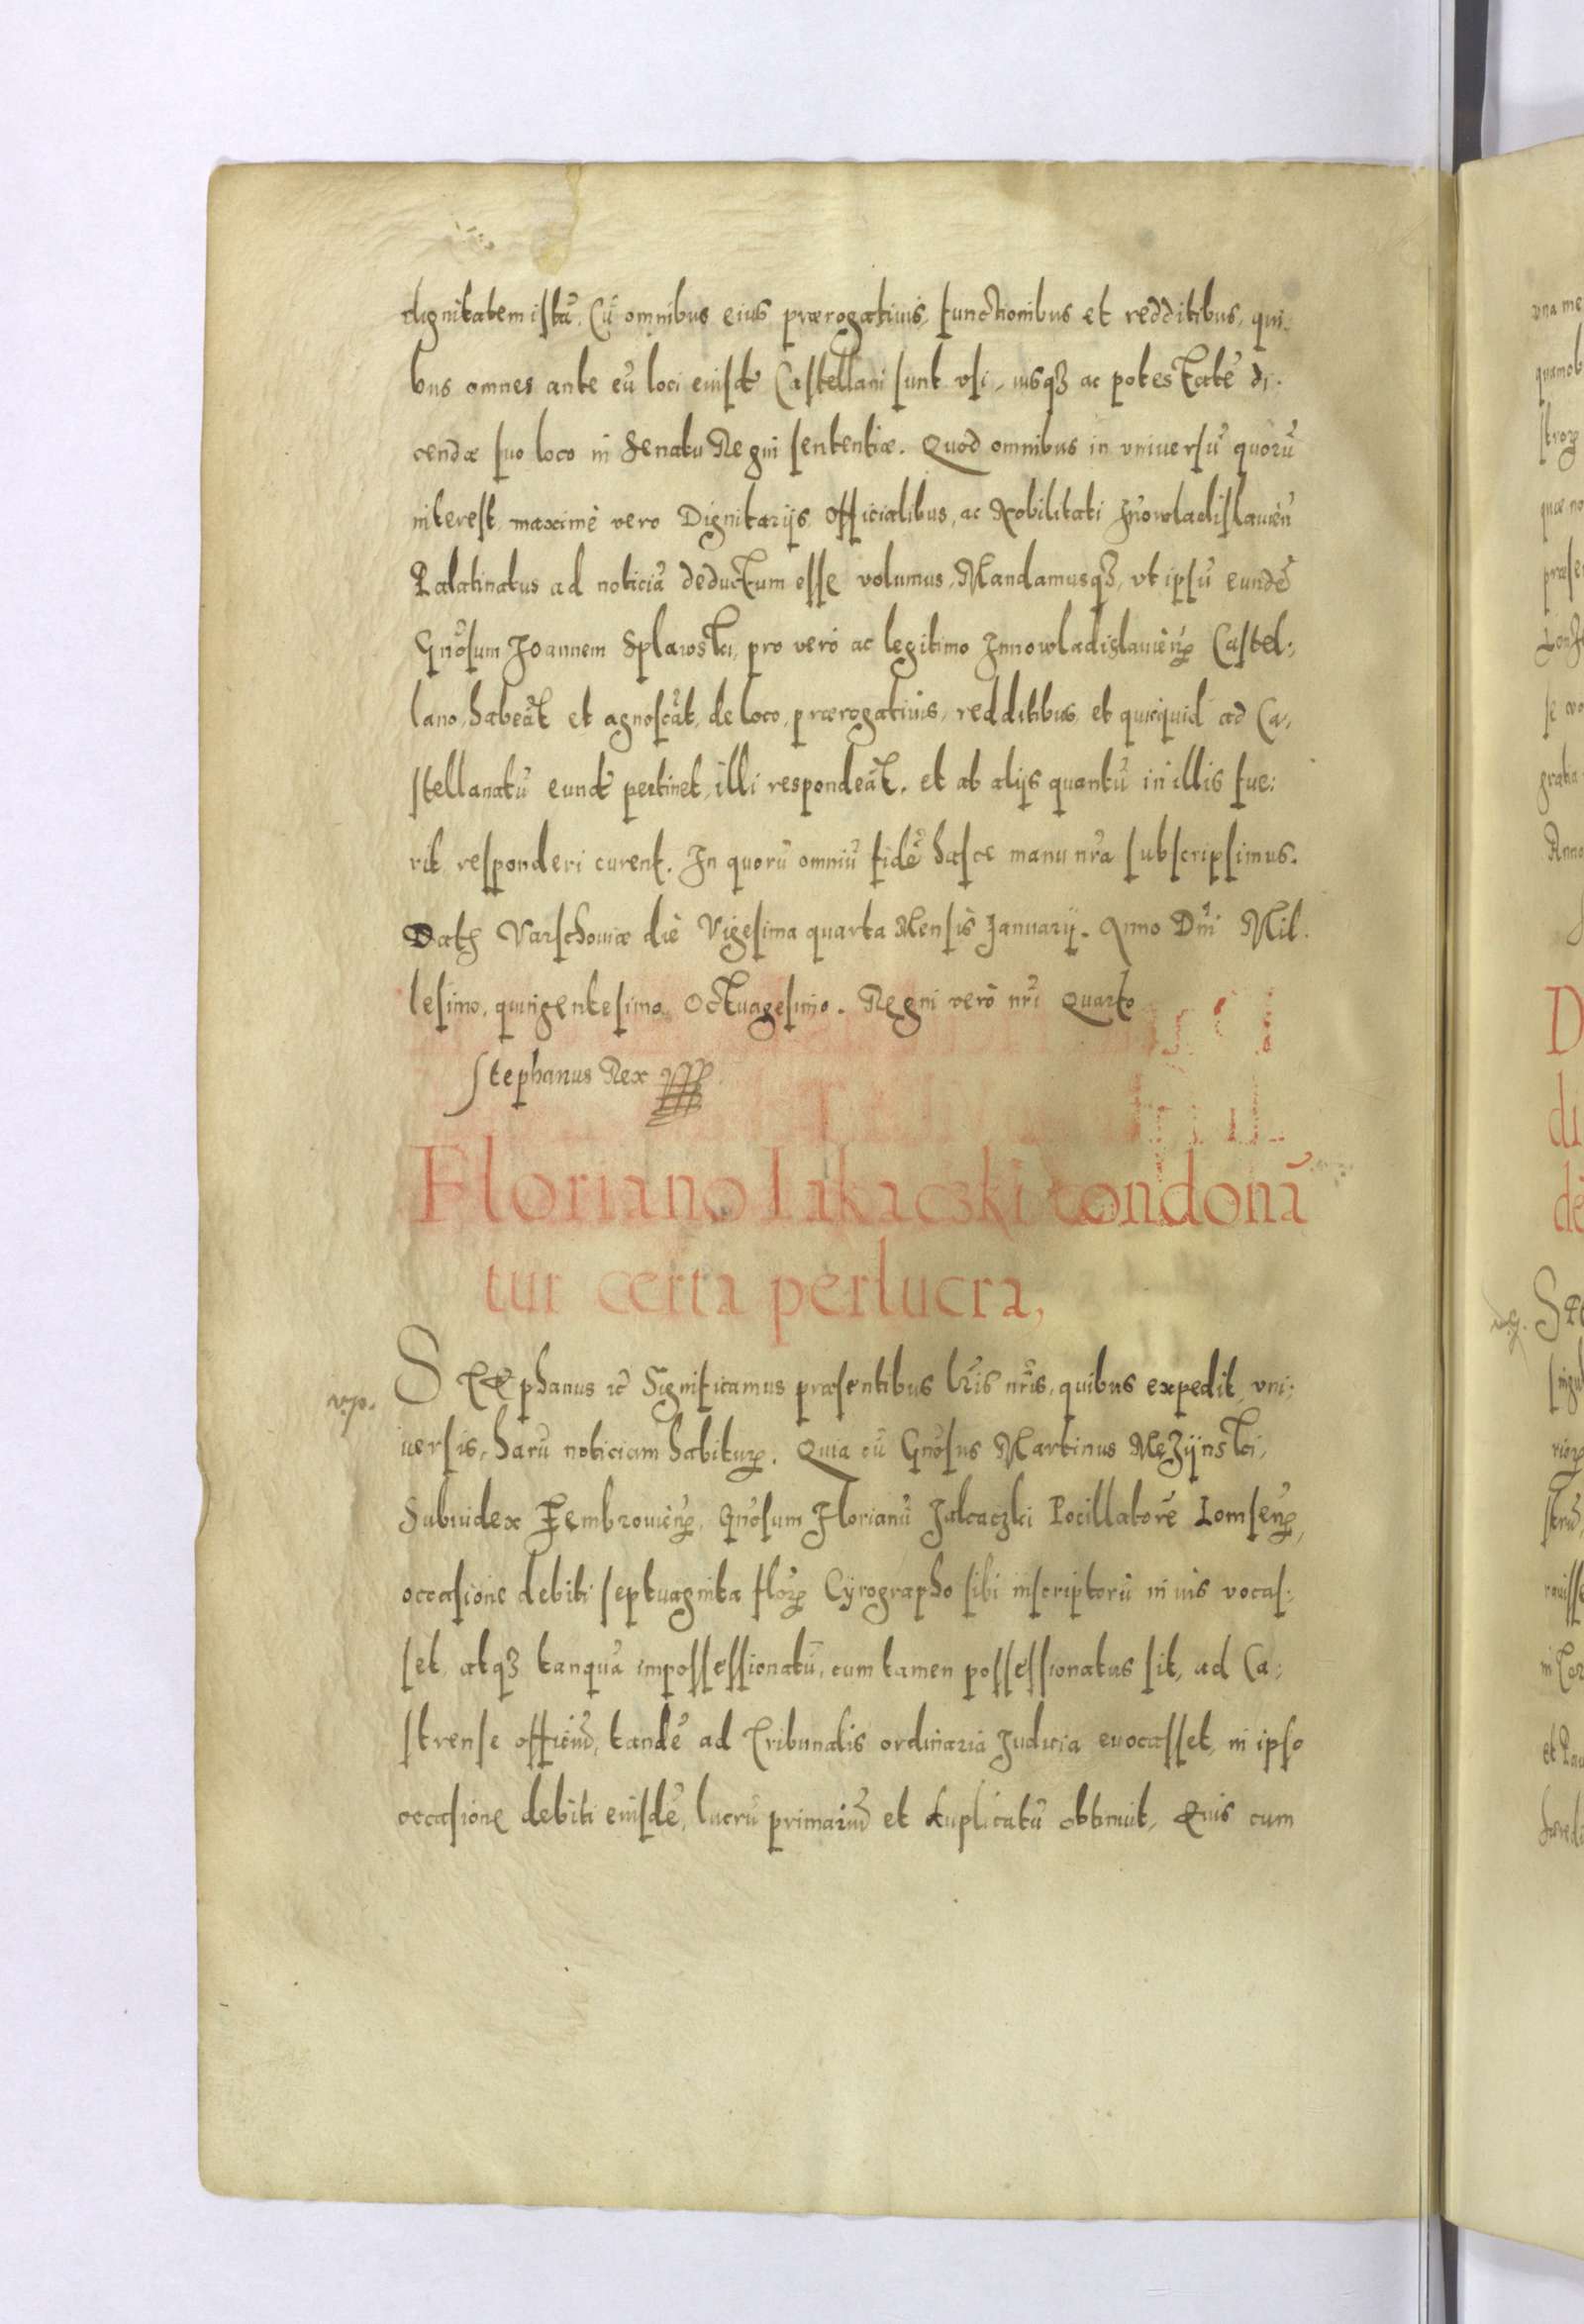 dignitatem istā, Cū omnibus eius prærogatiuis, functionibus et redditibus, qui-
bus omnes ante eū loci eiusdē Castellani sunt vsi, iusqꝫ ac potestatē di-
cendæ suo loco in Senatu Regni sententiæ. Quod omnibus in vniuersū quorū
interest, maximè vero Dignitarijs, Officialibus, ac Nobilitati Jnowladislauiēn
Palatinatus ad noticiā deductum esse volumus, Mandamusqꝫ, vt ipsū eundē
Gnōsum Joannem Splawski, pro vero ac legitimo Jnnowladislauiēn Castel:
lano, habeāt et agnoscāt, de loco, prærogatiuis, redditibus, et quicquid ad Ca-
stellanatū eundē pertinet, illi respondeāt. et ab alijs quantū in illis fue:
rit, responderi curent. In quorū omniū fidē hasce manu nrā subscripsimus.
Dat Varschouiæ diè Vigesima quarta Mensis Januarij. Anno Dnī Mil.
lesimo, quingentesimo, Octuagesimo. Regni verò nrī Quarto
Stephanus Rex
Floriano Iakaczki condonā
tur certa perlucra,
Stephanus ꝛc̄ Significamus præsentibus lrīs nrīs, quibus expedit, vni:
vp.
uersis, harū noticiam habiturꝝ. Quia cū Gnōsus Martinus Mezÿnski,
Subiudex Zembrouiēn, Gnōsum Florianū Jakaczki Pocillatorē Lomsēn,
occasione debiti septuaginta florꝝ Cyrographo sibi inscriptorū in ius vocas:
set, atqꝫ tanquā impossessionatū, cum tamen possessionatus sit, ad Ca:
strense officiū, tandē ad Tribunalis ordinaria Judicia euocasset, in ipso
occasione debiti eiusdē, lucrū primariū et duplicatū obtinuit, Quis cum